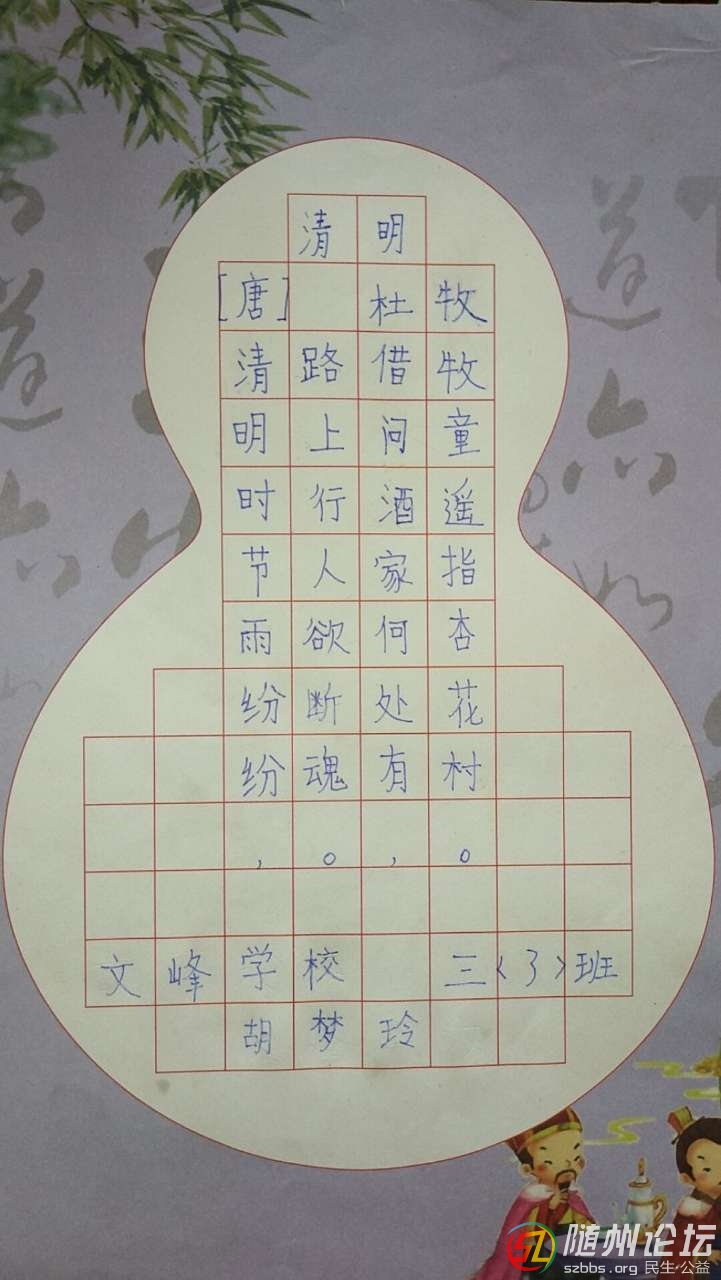 清明
[唐] 杜牧
清明时节雨纷纷,
路上行人欲断魂。
借问酒家何处有,
牧童遥指杏花村。
文峰学校 三<3>班
胡梦玲
随州论坛
szbbs.org 民生·公益